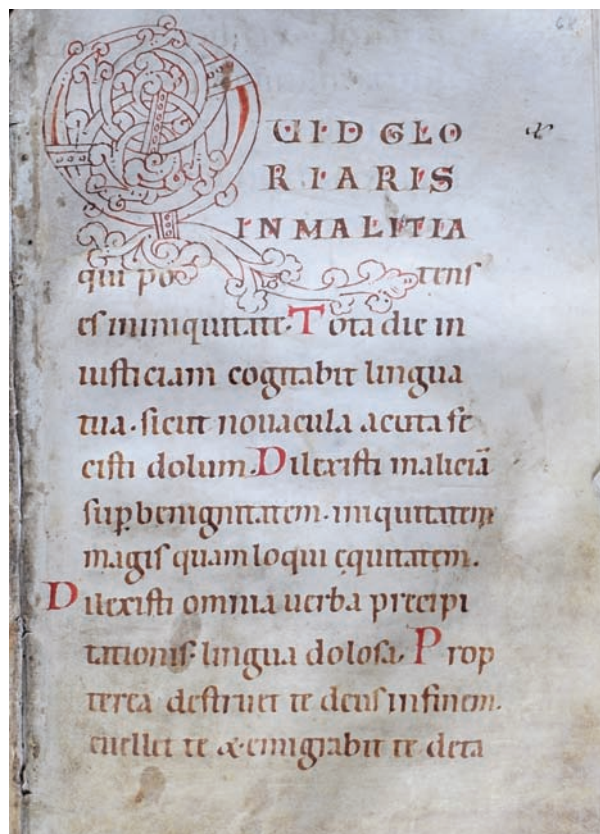 68
QUID GLO &
RIARIS
IN MALITIA
qui potens
es in iniquitate. Tota die in
iusticiam cogitabit lingua
tua. sicut nouacula acuta fe
cisti dolum. Dilexisti maliciā
sup̱ benignitatem. iniquitatem
magis quam loqui ęquitatem.
Dilexisti omnia uerba precipi
tationis. lingua dolosa. Prop
terea destruet te deus in finem.
euellet te & emigrabit te de ta